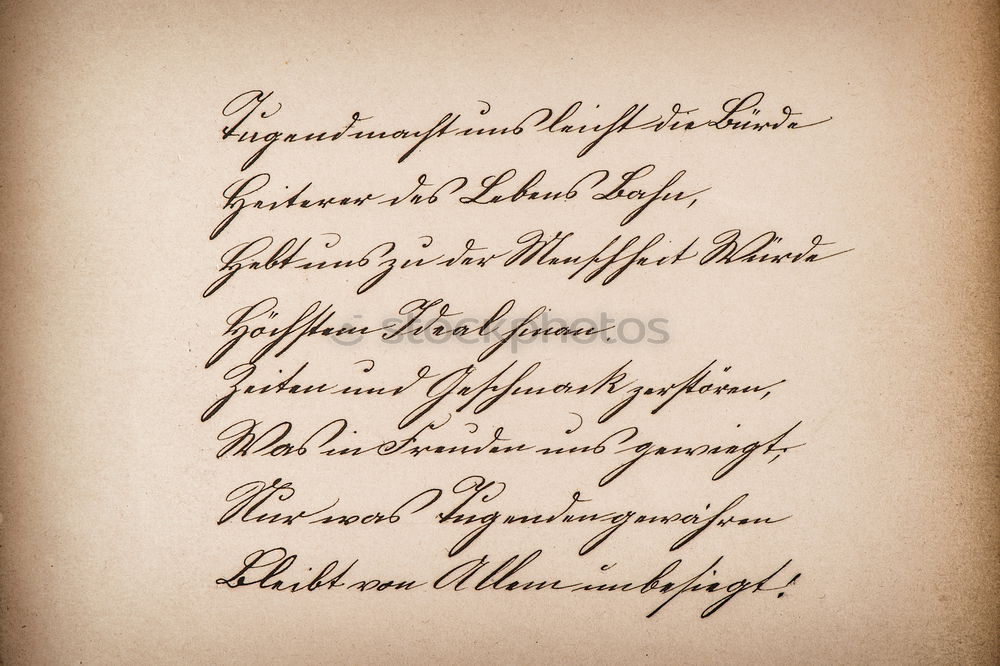 Tugend macht uns leicht die Bürde
Heiterer des Lebens Bahn,
Hebt uns zu der Menschheit Würde
Höchstem Ideal hinan.
stockphotos
Zeiten und Geschmack zerstören,
Was in Freuden uns gewiegt,
Nur was Tugenden gewähren
Bleibt von Allem unbesiegt!